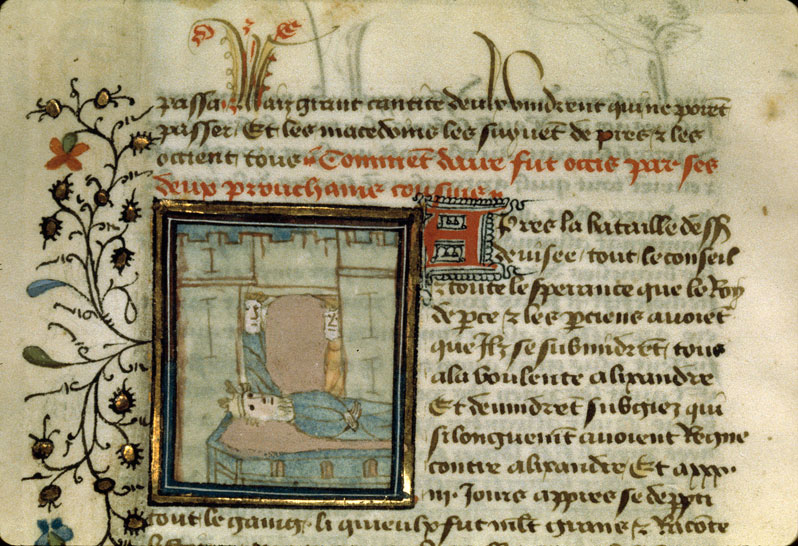 passa Mais grant cantite deulx vindrent qui ne porēt
passer Et les macedoins les suyuēt de pres & les
occient tous Comment daire fut occis par ses
deux prouchains cousins
Apres la bataille dess
deuisee tout le conseil
& toute lesperance que le Roy
de pce & les pciens auoiēt
que Ilz se submidrēt tous
a la voulente alixandre
Et deuindrēt subgiez qui
si longuemēt auoient Regne
contre alixandre Et a xxx.
iij. Jours appres se depti
tout le gaing li quieulx fut mlt grans & Racōte